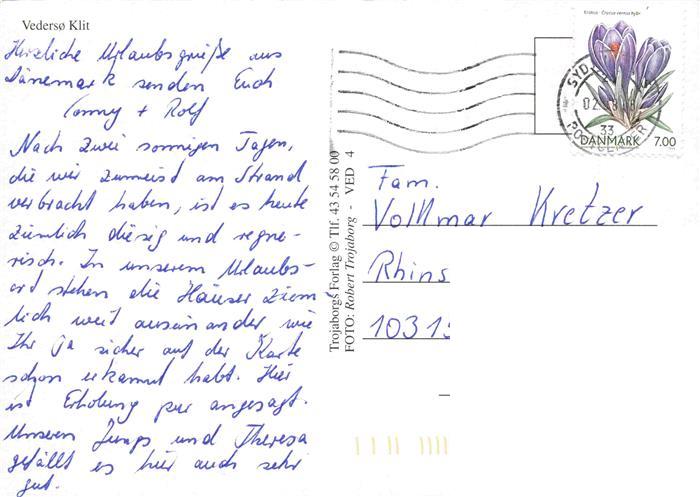 Vedersø Klit
Herzliche Urlaubsgrüße aus
Dänemark senden Euch
Conny + Rolf
Nach zwei sonnigen Tagen,
die wir zumeist am Strand
verbracht haben, ist es heute
ziemlich diesig und regne-
risch. In unserem Urlaubs-
ort stehen die Häuser ziem
lich weit auseinander wie
Ihr ja sicher auf der Karte
schon erkannt habt. Hier
ist Erholung pur angesagt.
Unseren Jungs und Theresa
gefällt es hier auch sehr
gut.
Trojaborgs Forlag © Tlf. 43 54 58 00
FOTO: Robert Trojaborg - VED 4
SYD
02
33
DANMARK 7.00
Fam.
Volkmar Kretzer
Rhins
10315